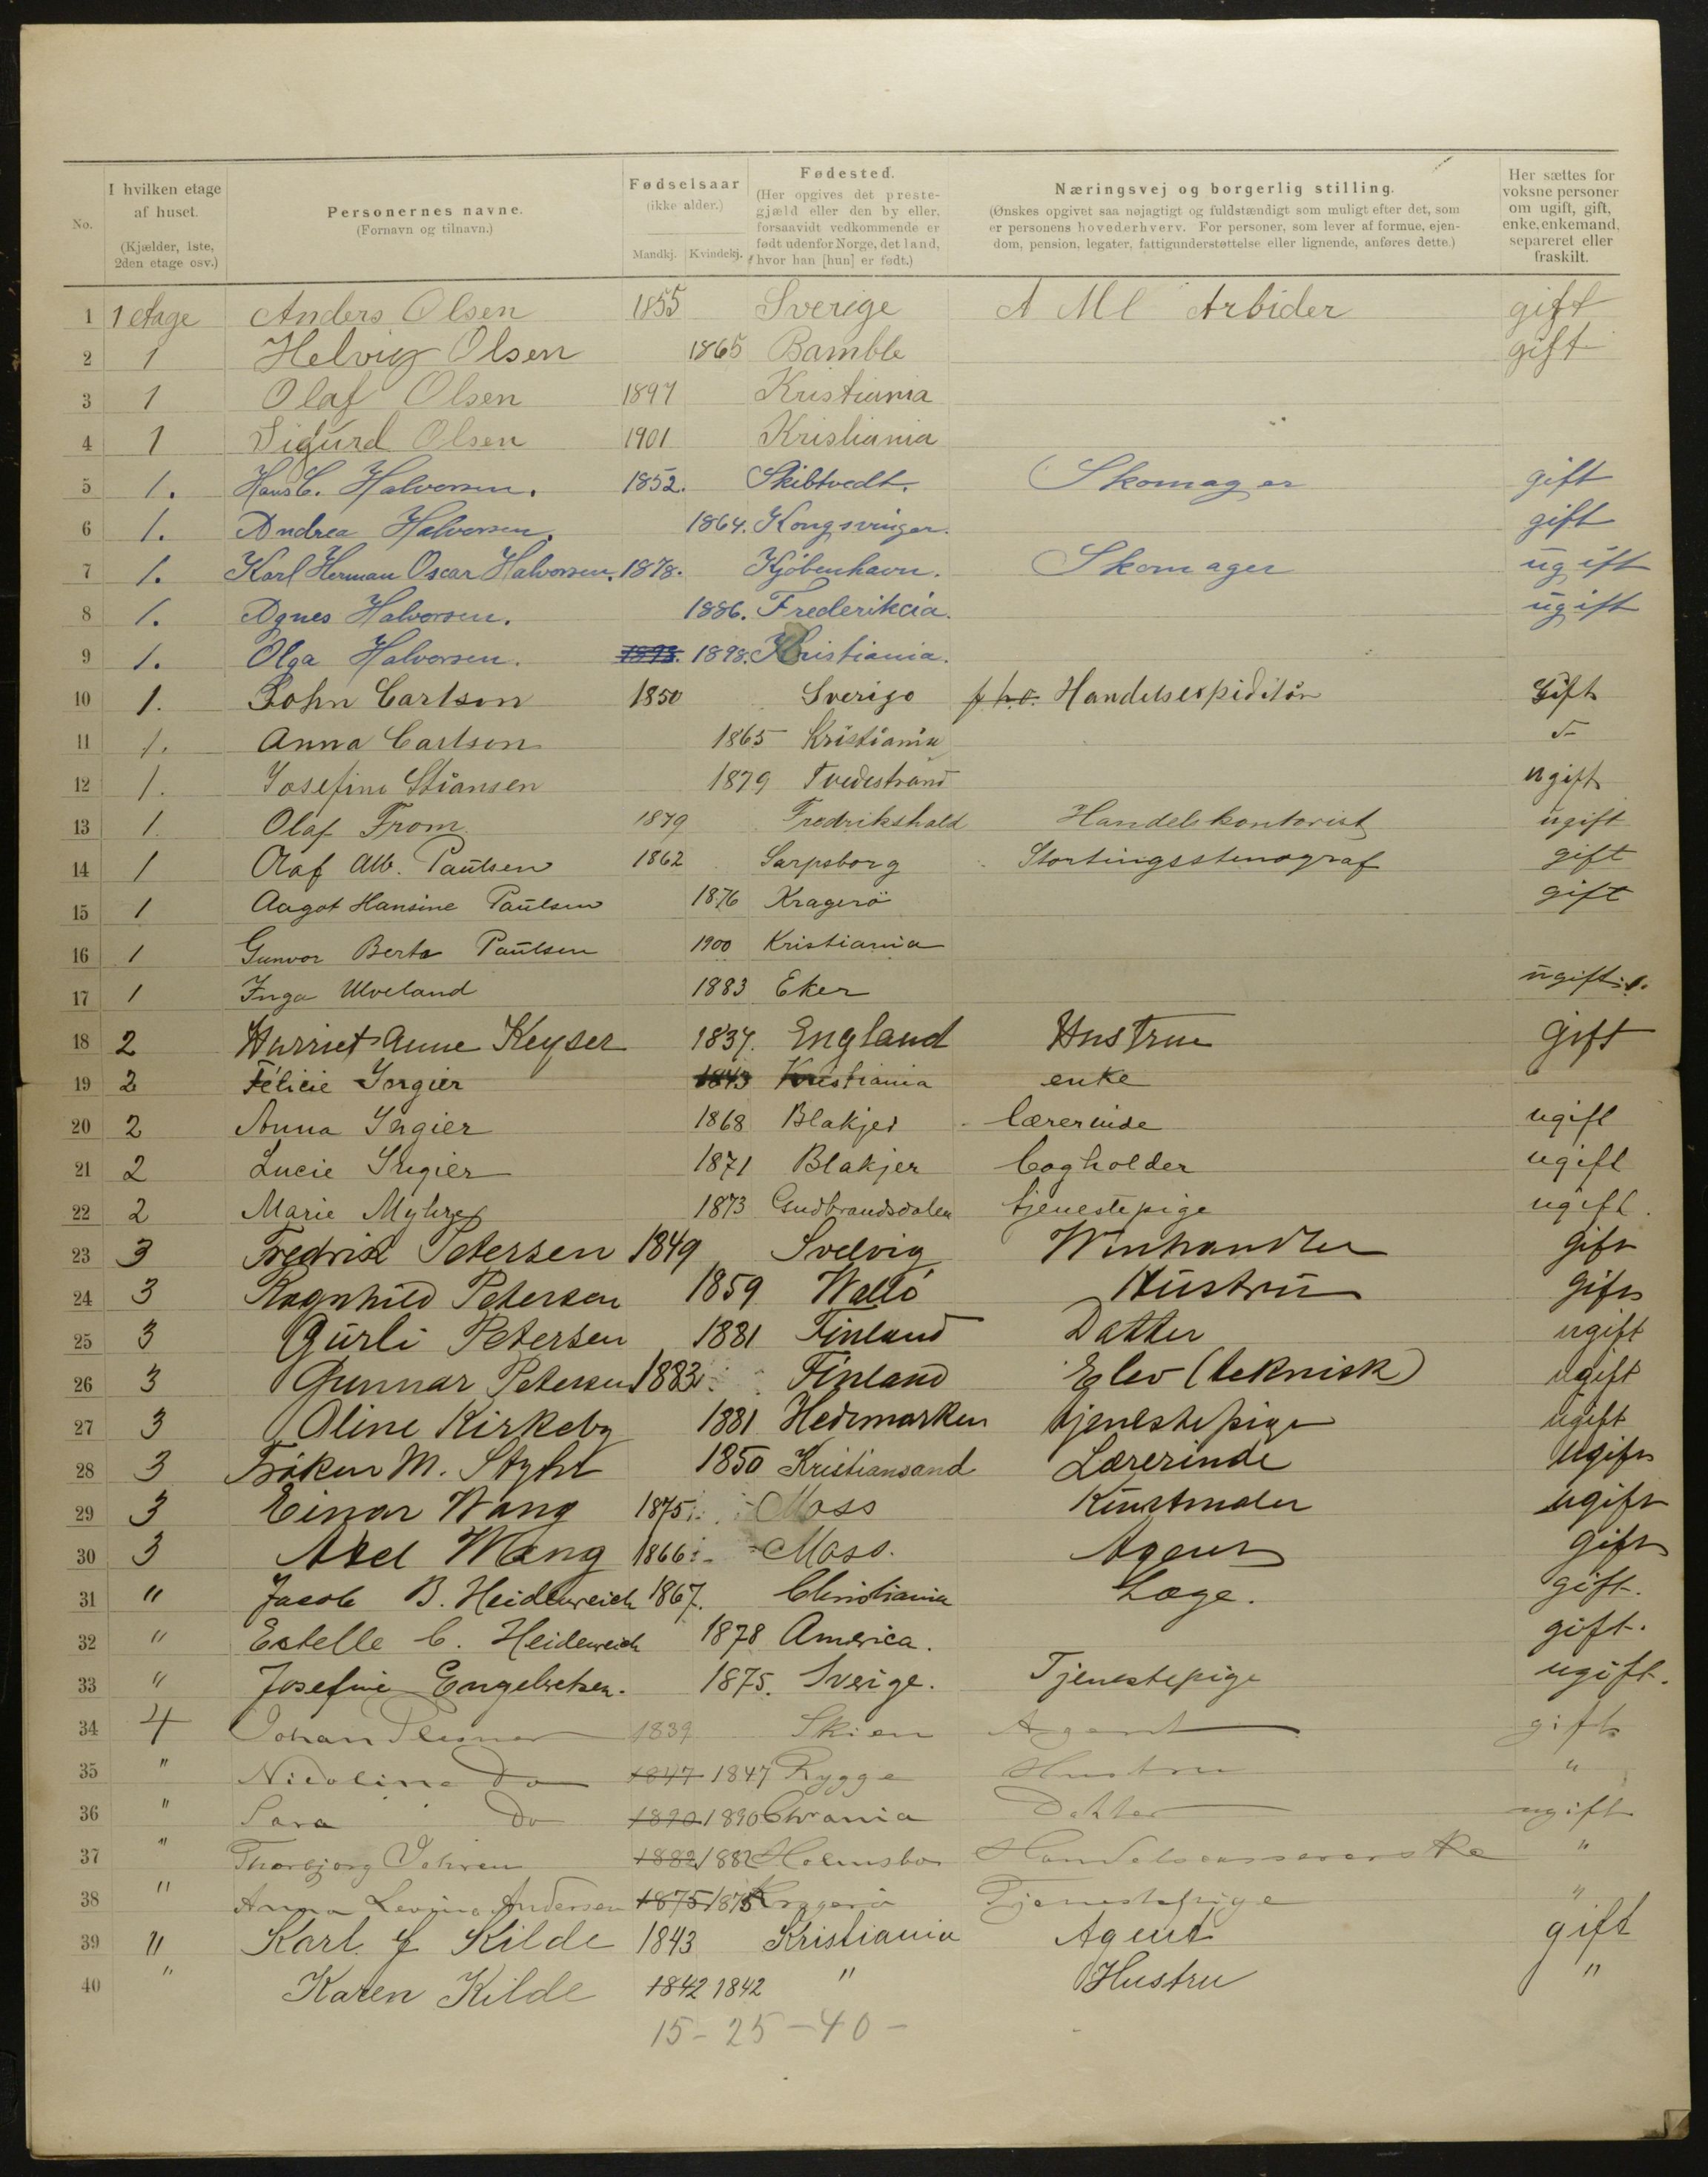 No.
I hvilken etage af huset. (Kjælder, 1ste, 2den etage osv.)
Personernes navne. (Fornavn og tilnavn.)
Fødselsaar (ikke alder.) Mandkj. Kvindekj.
Fødested. (Her opgives det prestegjæld eller den by eller, forsaavidt vedkommende er født udenfor Norge, det land, hvor han [hun] er født.)
Næringsvej og borgerlig stilling. (Ønskes opgivet saa nøjagtigt og fuldstændigt som muligt efter det, som er personens hovederhverv. For personer, som lever af formue, ejendom, pension, legater, fattigunderstøttelse eller lignende, anføres dette.)
Her sættes for voksne personer om ugift, gift, enke, enkemand, separeret eller fraskilt.
1 1 etage Anders Olsen 1855 Sverige Arbider gift
2 1 Helvig Olsen 1865 Bamble gift
3 1 Olaf Olsen 1897 Kristiania
4 1 Sigurd Olsen 1901 Kristiania
5 1. Hans C. Halvorsen. 1852. Skibtvedt. Skomager gift
6 1. Andrea Halvorsen. 1864. Kongsvinger. gift
7 1. Karl Herman Oscar Halvorsen. 1878. Kjøbenhavn. Skomager ugift
8 1. Agnes Halvorsen. 1886. Frederikcia. ugift
9 1. Olga Halvorsen. 1898. 1898. Kristiania.
10 1. John Carlson 1850 Sverige Handelsexpiditör Gift
11 1. Anna Carlson 1865 Kristiania
12 1. Josefine Stiansen 1879 Tvedestrand ugift
13 1. Olaf From 1879 Fredrikshald Handelskontorist ugift
14 1 Olaf Alb. Paulsen 1862 Sarpsborg Stortingsstenograf gift
15 1 Aagot Hansine Paulsen 1876 Kragerö gift
16 1 Gunvor Berta Paulsen 1900 Kristiania
17 1 Inga Ulveland 1883 Eker ugift
18 2 Harriet Anne Keyser 1837. England Hustru gift
19 2 Félicie 1843 Kristiania enke
20 2 Anna 1868 Blakjer lærerinde ugift
21 2 Lucie 1871 Blakjer bogholder ugift
22 2 Marie Myhre 1873 Gudbrandsdalen tjenestepige ugift.
23 3 Fredrik Petersen 1849 Svelvig Vinhandler gift
24 3 Ragnhild Petersen 1859 Hustru gift
25 3 Gurli Petersen 1881 Finland Datter ugift
26 3 Gunnar Petersen 1883 Finland Elev (teknisk) ugift
27 3 Oline Kirkeby 1881 Hedemarken tjenestepige ugift
28 3 Fröken M. 1850 Kristiansand Lærerinde ugift
29 3 Einar Wang 1875 Moss Kunstmaler ugift
30 3 Axel Wang 1866 Moss. Agent gift
31 " Jacob B. Heidenreich 1867. Christiania Læge. gift.
32 " Estelle C. Heidenreich 1878 America. gift.
33 " Josefine Engebretsen. 1875. Sverige. Tjenestepige ugift.
34 4 Johan 1839 Skien Agent gift
35 " Nicoline Do 1847 1847 Rygge Hustru "
36 " Sara Do 1890 1890 Chrania Datter ugift
37 " Thorbjørg 1882 1882 Holmsbo "
38 " Anna Levina Andersen 1875 1875 Kragerö Tjenestepige "
39 " Karl J Kilde 1843 Kristiania Agent gift
40 " Karen Kilde 1842 1842 " Hustru "
15 - 25 - 40 -